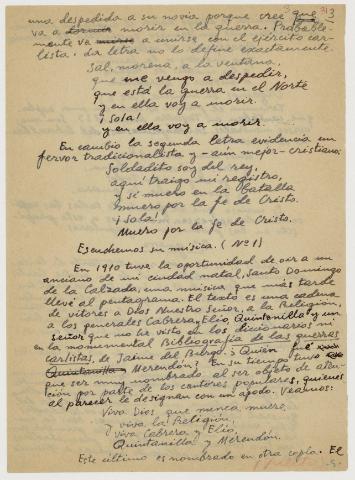 313
una despedida a su novia porque cree que
va a morir en la guerra. Probable-
mente va a unirse con el ejército car-
lista. La letra no lo define exactamente.
Sal, morena, a la ventana,
que me vengo a despedir,
que está la guerra en el Norte
y en ella voy a morir.
¡Sola!
y en ella voy a morir.
En cambio la segunda letra evidencia un
fervor tradicionalista y -aún mejor- cristiano:
Soldadito soy del rey,
aquí traigo mi registro,
y si muero en la batalla
muero por la fe de Cristo.
¡Sola!
Muero por la fe de Cristo.
Escuchemos su música. (Nº 1)
En 1910 tuve la oportunidad de oir a un
anciano de mi ciudad natal, Santo Domingo
de la Calzada, una música que más tarde
llevé al pentagrama. El texto es una cadena
de vítores a Dios Nuestro Señor, a la Religión,
a los generales Cabrera, Elío, Quintanilla y un
señor que no he visto en los diccionarios ni
en la monumental Bibliografía de las guerras
carlistas, de Jaime del Burgo. ¿Quién fué
Quintanilla Merendón? En su tiempo tuvo
que ser muy nombrado al ser objeto de aten-
ción por parte de los cantores populares, quienes
al parecer le designan con un apodo. Veamos:
Viva Dios que nunca muere,
y viva la Religión,
y viva Cabrera y Elío,
Quintanilla y Merendón.
Este último es nombrado en otra copla. El